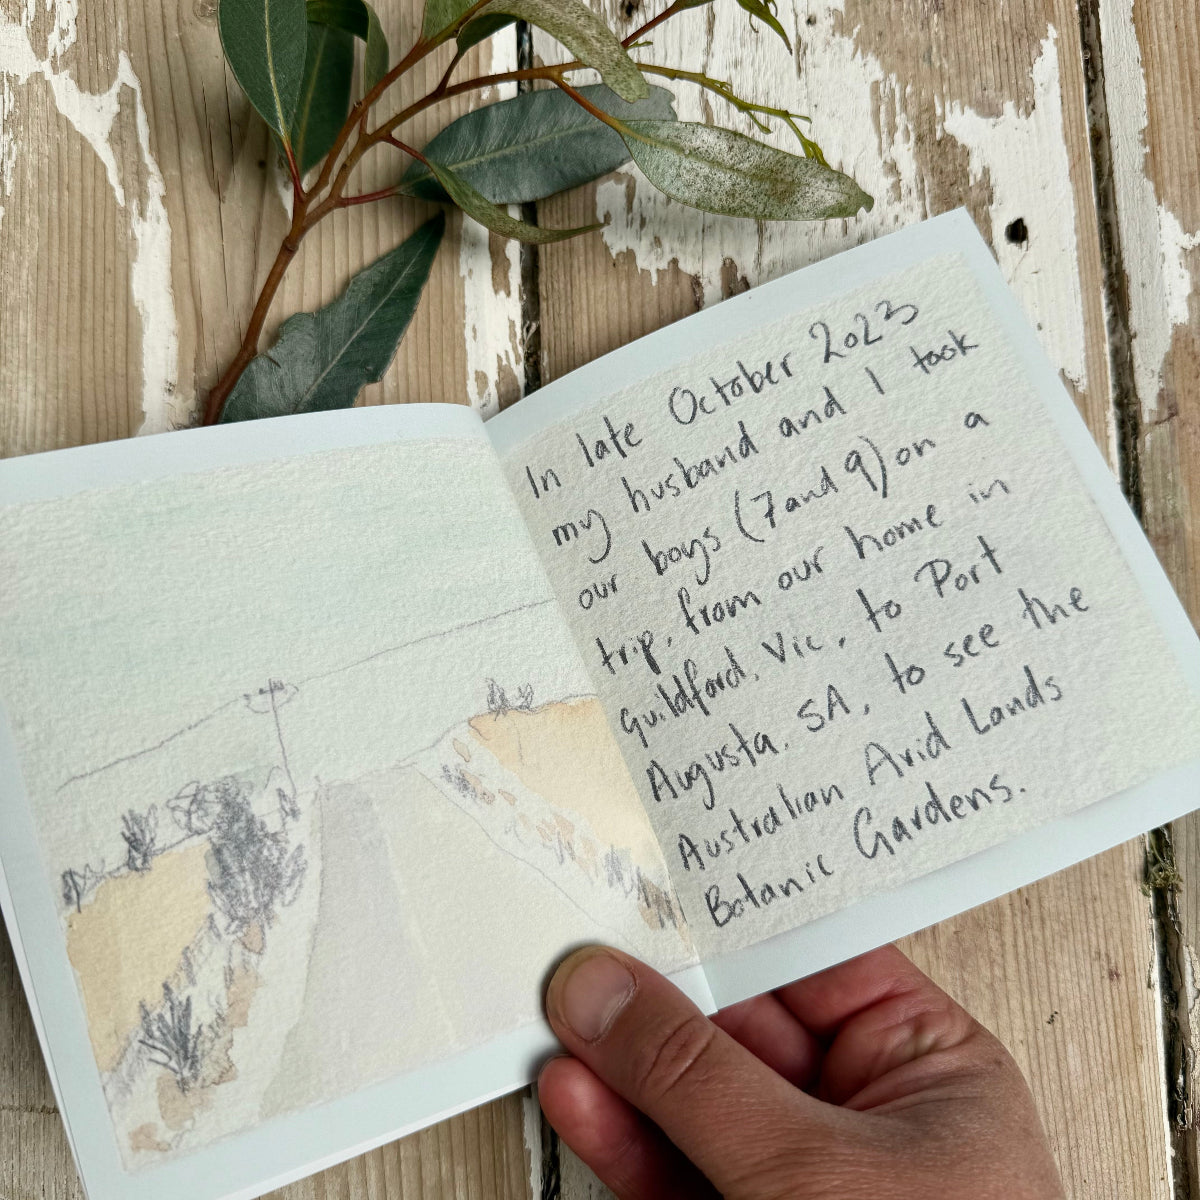 In late October 2023
my husband and I took
our boys (7 and 9) on a
trip, from our home in
Guildford, Vic, to Port
Augusta, SA, to see the
Australian Arid Lands
Botanic Gardens.